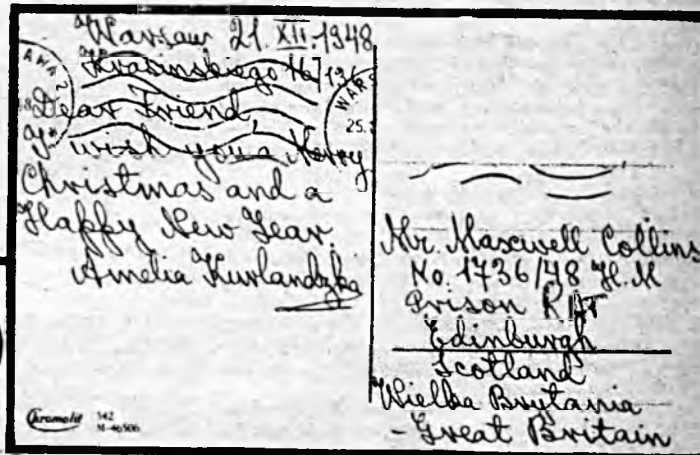 Warsaw 21. XII. 1948
Krasinskiego 16/136
Dear Friend,
I wish you a Merry
Christmas and a
Happy New Year.
Amelia Kurlandzka
25.
Mr. Maxwell Collins
No. 1736/48 H.M
Prison
Edinburgh
Scotland
Wielka Brytania
- Great Britain
Chromolit 542